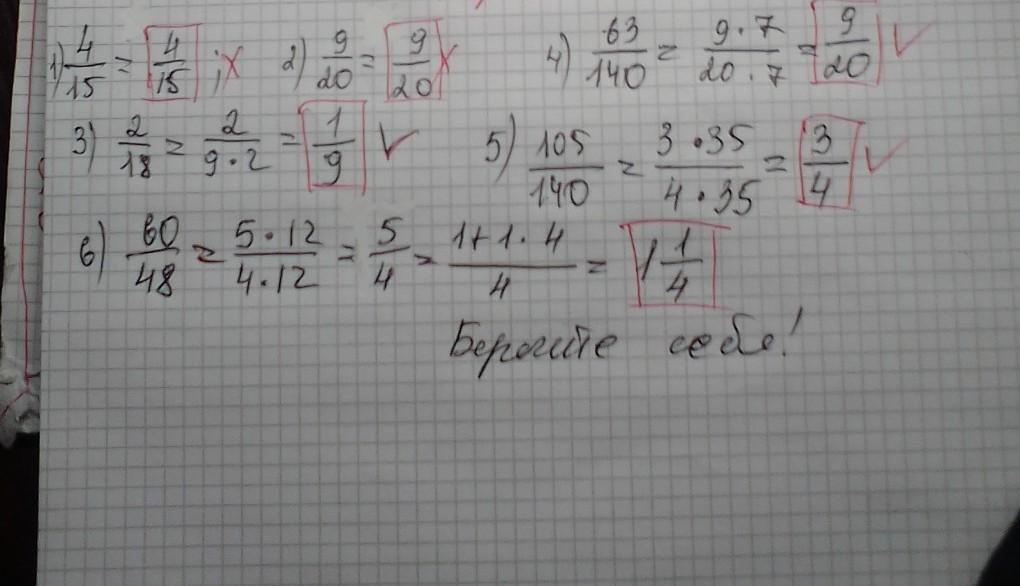 1) 4/15 = 4/15 ; x 2) 9/20 = 9/20 x 4) 63/140 = 9·7/20·7 = 9/20 ✓
3) 2/18 = 2/9·2 = 1/9 ✓ 5) 105/140 = 3·35/4·35 = 3/4 ✓
6) 60/48 = 5·12/4·12 = 5/4 = 1+1·4/4 = 1 1/4
себе!